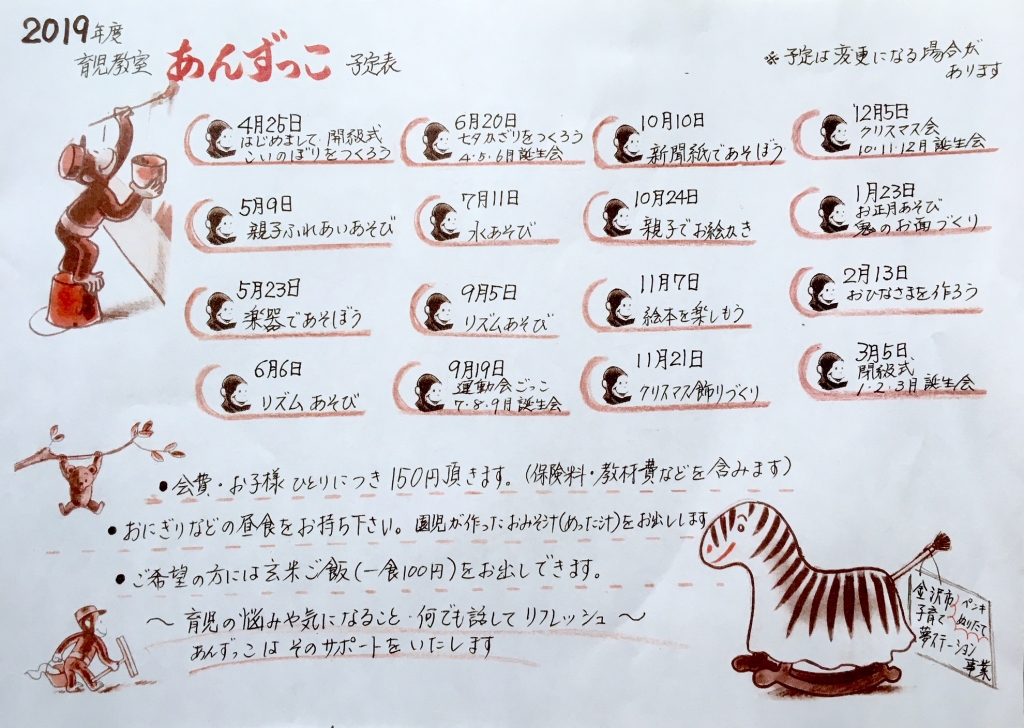 2019年度
育児教室 あんずっこ 予定表
※予定は変更になる場合が
あります
4月25日
はじめまして 開級式
こいのぼりをつくろう
5月9日
親子ふれあいあそび
5月23日
楽器であそぼう
6月6日
リズムあそび
6月20日
七夕かざりをつくろう
4・5・6月誕生会
7月11日
水あそび
9月5日
リズムあそび
9月19日
運動会ごっこ
7・8・9月誕生会
10月10日
新聞紙であそぼう
10月24日
親子でお絵かき
11月7日
絵本を楽しもう
11月21日
クリスマス飾りづくり
12月5日
クリスマス会
10・11・12月誕生会
1月23日
お正月あそび
鬼のお面づくり
2月13日
おひなさまを作ろう
3月5日
閉級式
1・2・3月誕生会
●会費・お子様ひとりにつき150円頂きます。(保険料・教材費などを含みます)
●おにぎりなどの昼食をお持ち下さい。園児が作ったおみそ汁(めった汁)をお出しします
●ご希望の方には玄米ご飯(一食100円)をお出しできます。
～育児の悩みや気になること・何でも話してリフレッシュ～
あんずっこはそのサポートをいたします
金沢市
子育て
夢ステーション
事業
ペンキ
ぬりたて